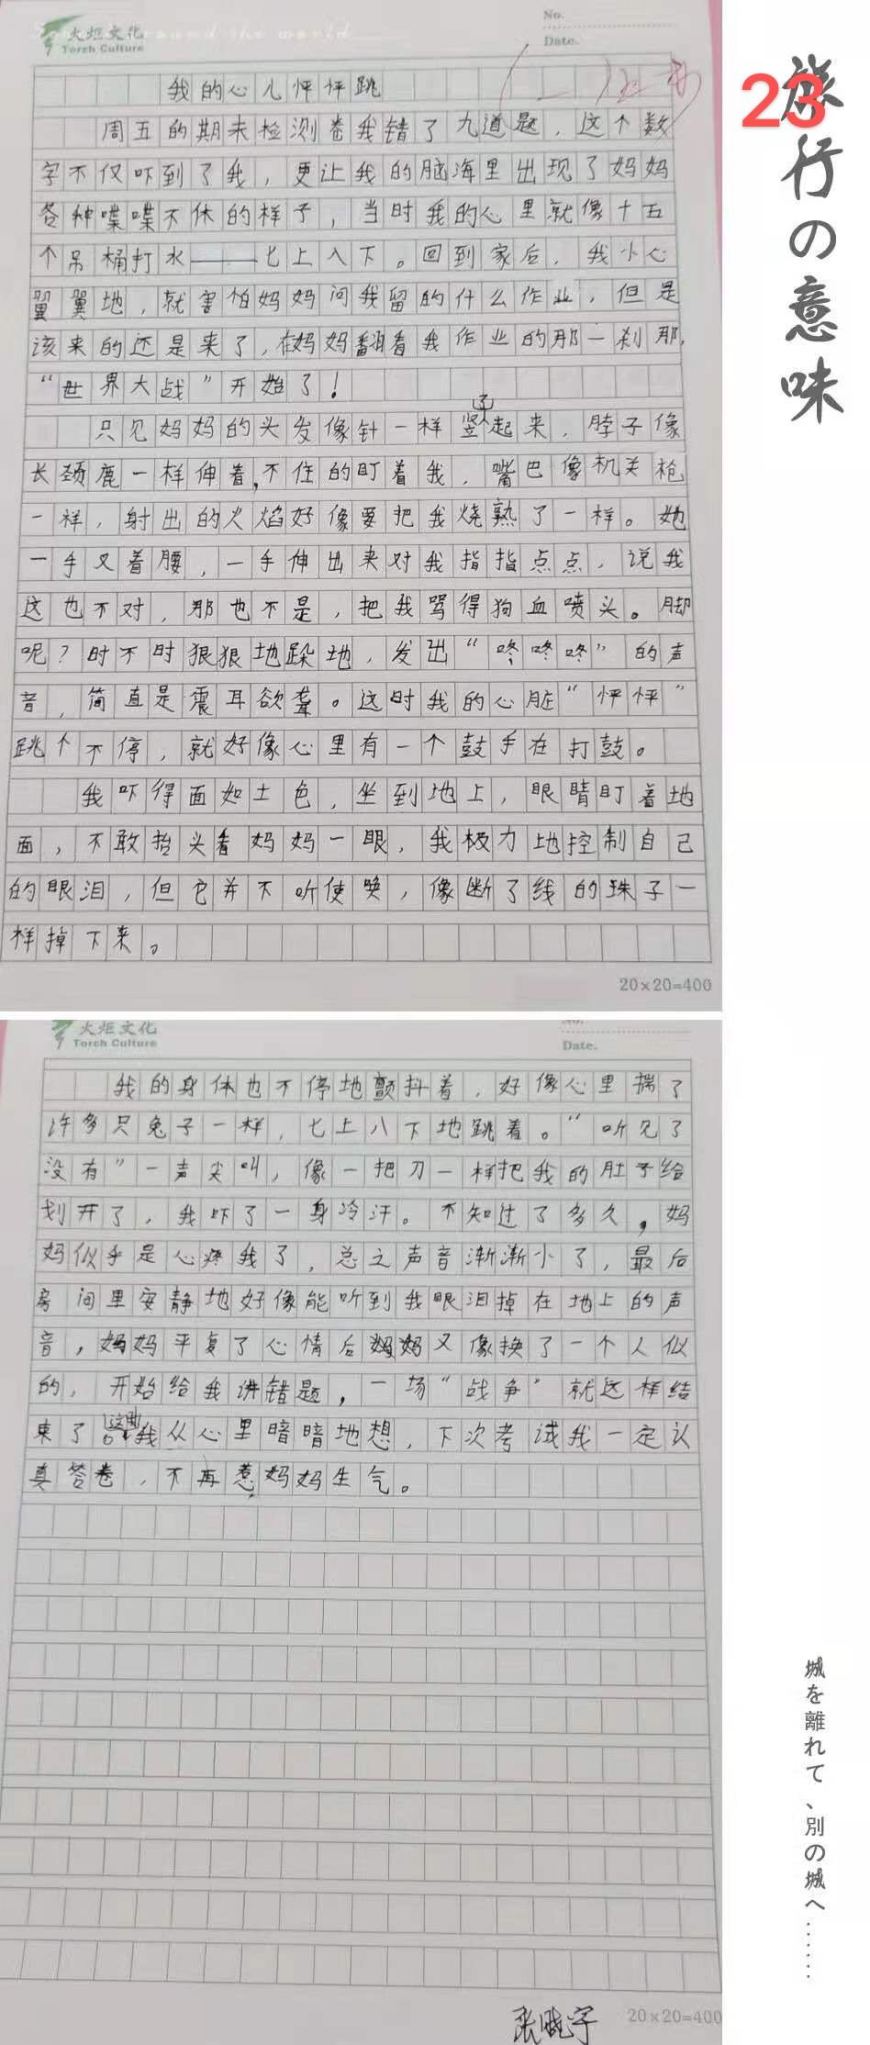 火炬文化
Torch Culture
No.
Date.
我的心儿怦怦跳
周五的期末检测卷我错了九道题，这个数
字不仅吓到了我，更让我的脑海里出现了妈妈
各种喋喋不休的样子，当时我的心里就像十五
个吊桶打水——七上八下。回到家后，我小心
翼翼地，就害怕妈妈问我留的什么作业，但是
该来的还是来了，在妈妈翻看我作业的那一刹那，
“世界大战”开始了！
只见妈妈的头发像针一样竖了起来，脖子像
长颈鹿一样伸着，不住的盯着我，嘴巴像机关枪
一样，射出的火焰好像要把我烧熟了一样。她
一手叉着腰，一手伸出来对我指指点点，说我
这也不对，那也不是，把我骂得狗血喷头。脚
呢？时不时狠狠地跺地，发出“咚咚咚”的声
音，简直是震耳欲聋。这时我的心脏“怦怦”
跳个不停，就好像心里有一个鼓手在打鼓。
我吓得面如土色，坐到地上，眼睛盯着地
面，不敢抬头看妈妈一眼，我极力地控制自己
的眼泪，但它并不听使唤，像断了线的珠子一
样掉下来。
20×20=400
火炬文化
Torch Culture
No.
Date.
我的身体也不停地颤抖着，好像心里揣了
许多只兔子一样，七上八下地跳着。“听见了
没有”一声尖叫，像一把刀一样把我的肚子给
划开了，我吓了一身冷汗。不知过了多久，妈
妈似乎是心疼我了，总之声音渐渐小了，最后
房间里安静地好像能听到我眼泪掉在地上的声
音，妈妈平复了心情后妈妈又像换了一个人似
的，开始给我讲错题，一场“战争”就这样结
束了。我从心里暗暗地想，下次考试我一定认
真答卷，不再惹妈妈生气。
20×20=400
23
旅行の意味
城を離れて、別の城へ……